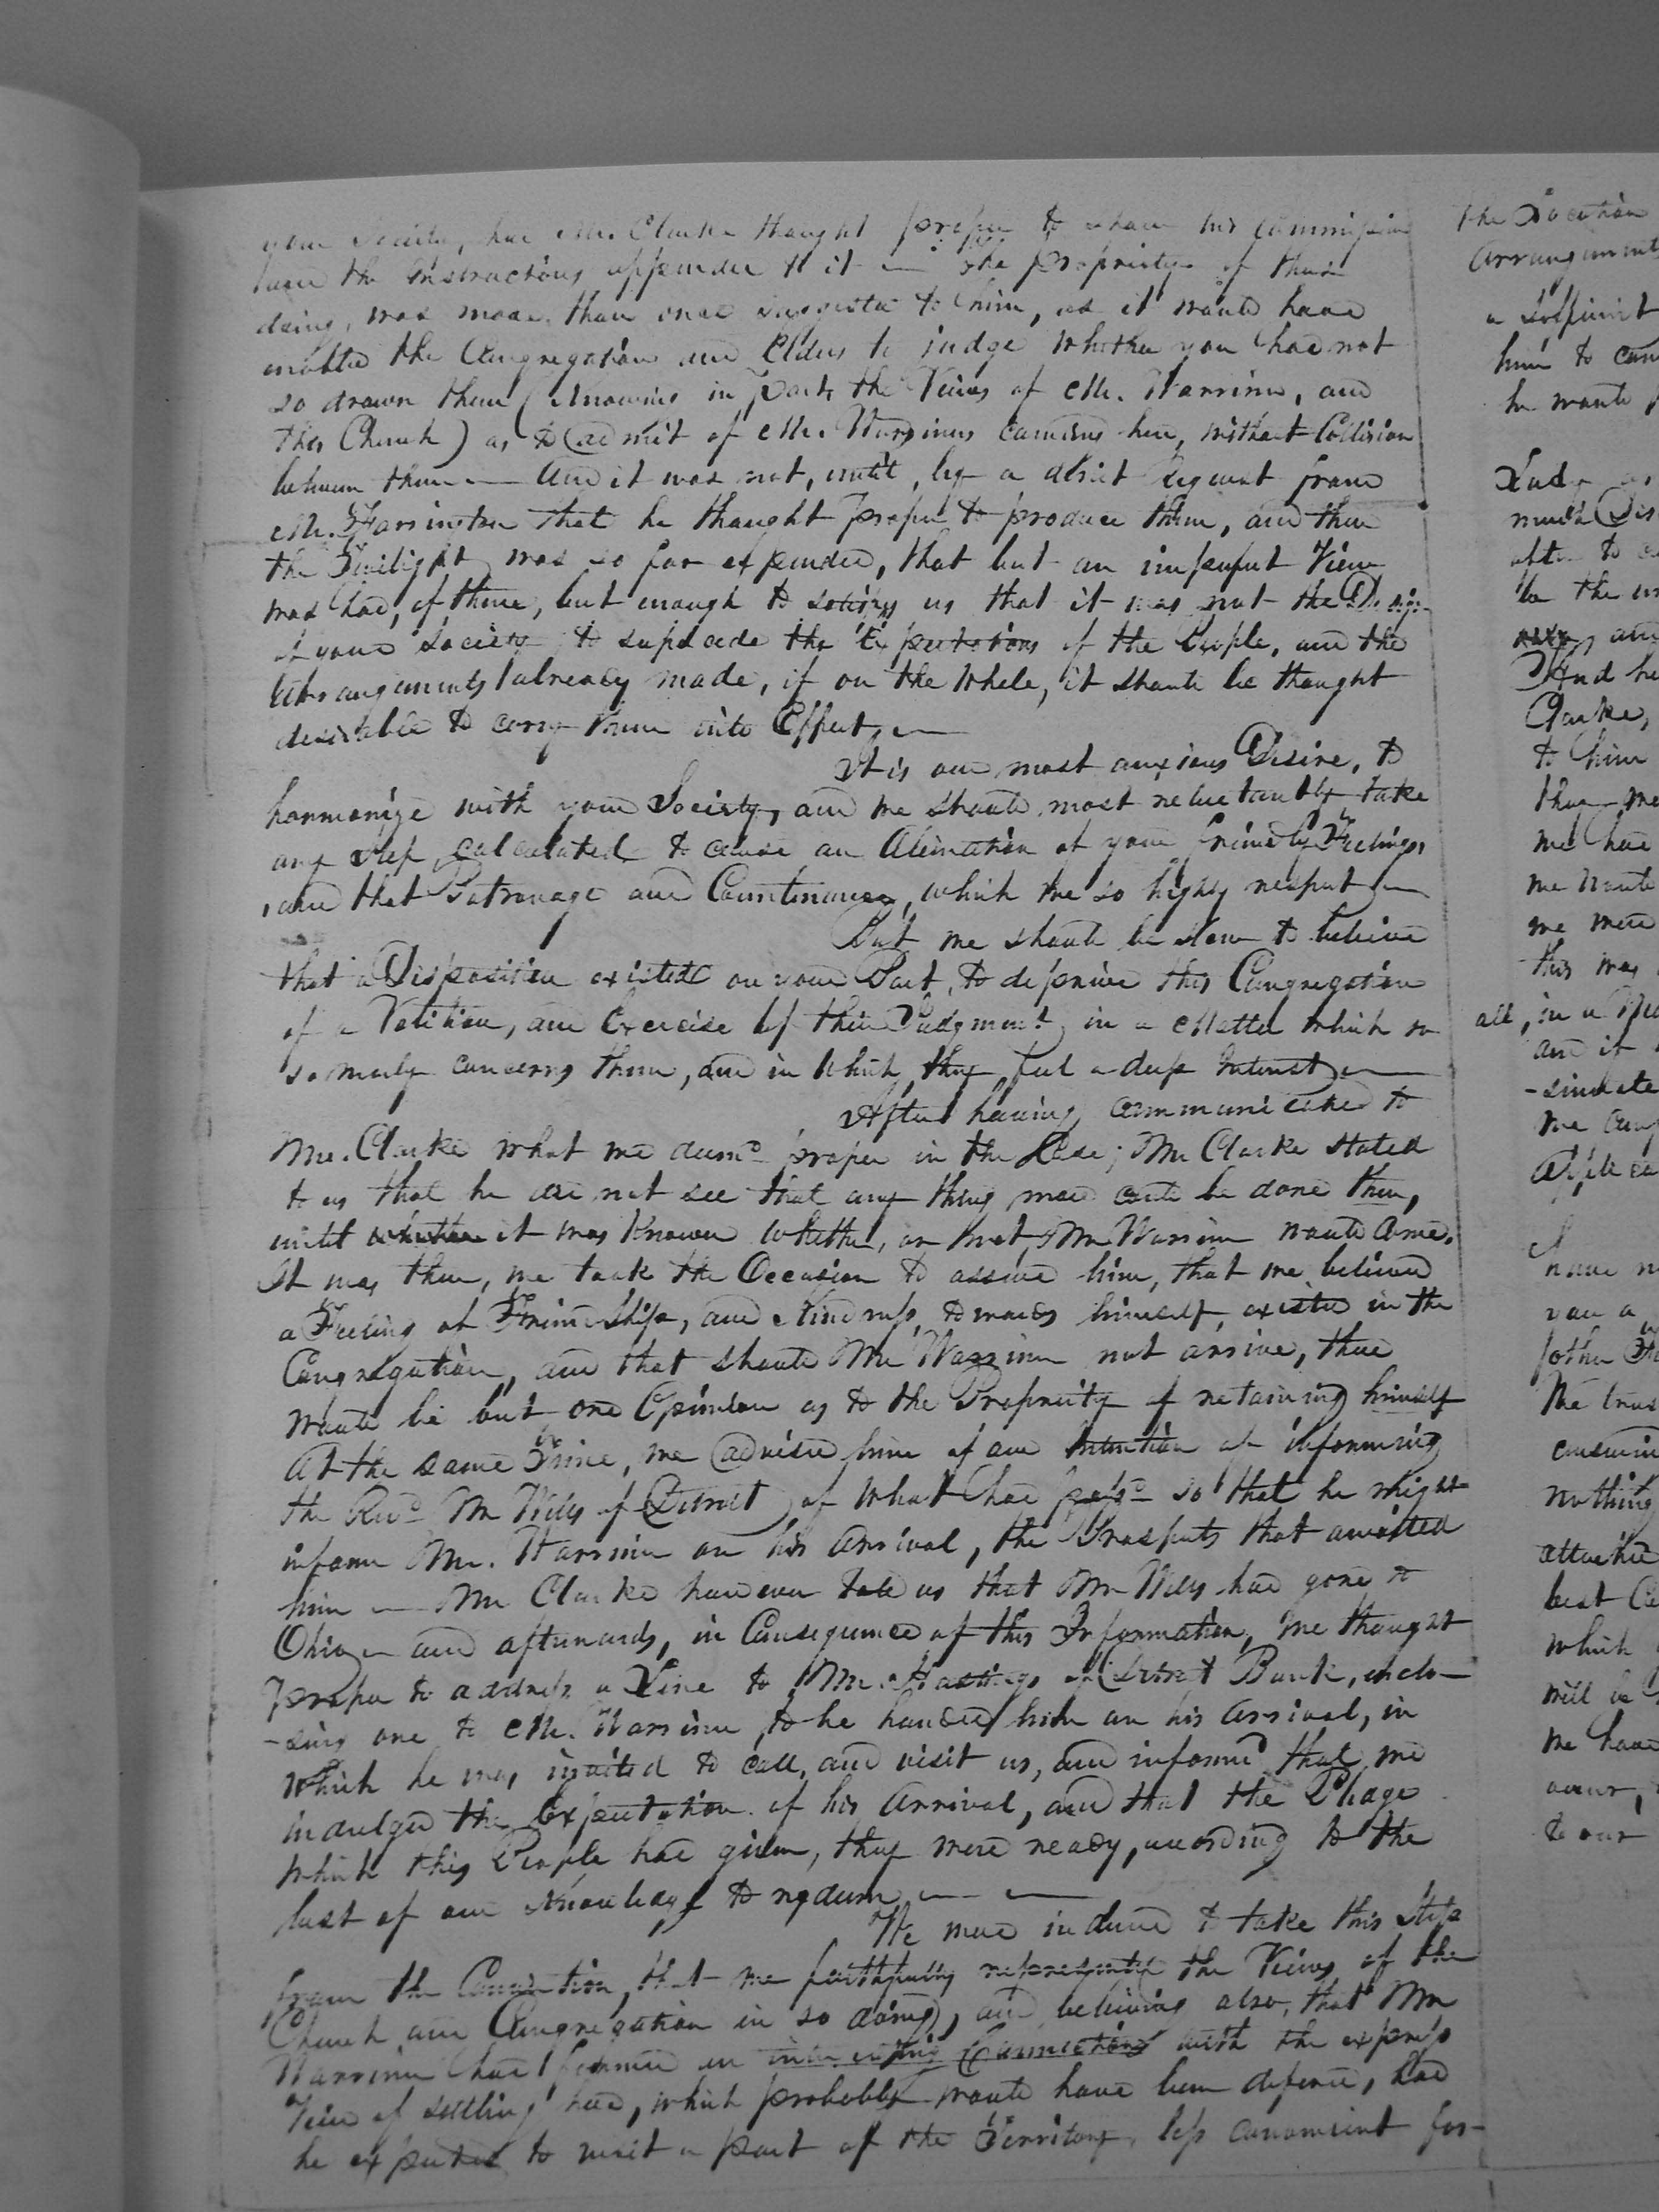 your Society, had Mr. Clarke thought proper to shew his Commission
and the Instructions appended to it — the propriety of thus
doing, was more than once suggested to him, as it would have
enabled the Congregation and Elders to judge whether you had not
so drawn them (Knowing in part the Views of Mr. Warriner, and
this Church) as to admit of Mr. Warriners coming here, without Collision
between them — And it was not, until, by a direct request from
Mr. Farrington that he thought proper to produce them, and then
the Twilight was so far expended, that but an imperfect View
was had, of them, but enough to satisfy us that it was not the Design
of your Society to supercede the Expectations of the People, and the
Arrangements already made, if on the whole, it should be thought
desirable to carry them into Effect —
It is our most anxious Desire, to
harmonize with your Society, and we should most reluctantly take
any step calculated to cause an Alienation of your friendly Feelings,
and that Patronage and Countinance, which we so highly respect —
But we should be slow to believe
that a Disposition existed on your Part, to deprive this Congregation
of a Volition, and Exercise of their Judgment, in a Matter which so
so nearly concerns them, and in which they feel a deep Interest —
After having communicated to
Mr. Clarke what we deemd proper in the Case; Mr Clarke stated
to us that he did not see that any thing more could be done then,
until whether it was Known whether, or not, Mr Warriner would come.
It was then, we took the Occasion to assure him, that we believed
a Feeling of Friendship, and Kindness, towards himself, existed in the
Congregation, and that should Mr Warriner not arrive, there
would be but one Opinion as to the Propriety of retaining himself
At the same Time, we advised him of our Intention of informing
the Revd Mr Wells of Detroit, of what had passd so that he might
inform Mr. Warriner on his Arrival, the Prospects that awaited
him — Mr Clarke however told us that Mr Wells had gone to
Ohio — and afterwards, in Consequence of this Information, we thought
proper to address a Line to Mr. Hastings of Detroit Bank, enclo-
-sing one to Mr. Warriner, to be handed him on his Arrival, in
which he was invited to call, and visit us, and informd that we
indulged the Expectation of his Arrival, and that the Pledge
which this People had given, they were ready, according to the
best of our Knowledge to redeem — —
We were induced to take this Step
from the Conviction, that we faithfully represented the Views of the
Church and Congregation in so doing, and believing also, that Mr
Warriner had formed an interesting Connection with the express
View of settling here, which probably would have been deferred, had
he expected to visit a part of the Territory, less convenient for-
the Location
Arrangements
him to
he would
much
to him
Clarke,
we had
we would
we were
this was
-sinuate
nothing
best
which
will be
we have
to our